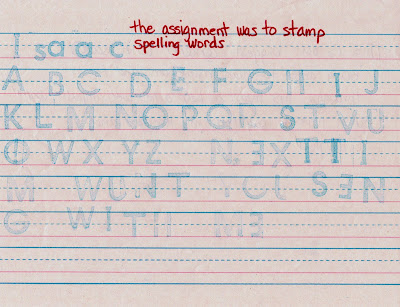 the assignment was to stamp
spelling words
Isaac
A B C D E F G H I J
K L M N O P Q R S T V U
W X Y Z NƎXT TI
M WUNT YOU SƎN
G WITH MƎ